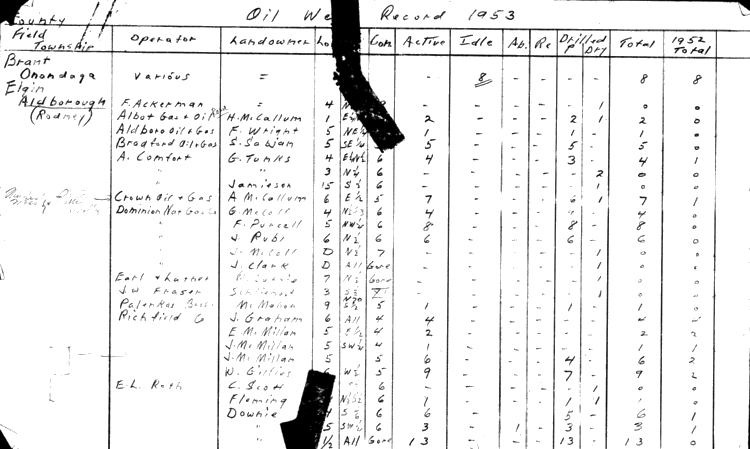 Oil We Record 1953
County
Field
Township Operator Landowner Lo Con. Active Idle Ab. Re Drilled P Dry Total 1952 Total
Brant
Onondaga Various " - 8 - - - - 8 8
Elgin
Aldborough F. Ackerman " 4 - - - - - 1 0 0
(Rodney) Albot Gas + Oil H. McCallum 1 2 - - - 2 1 2 0
Aldboro Oil + Gas F. Wright 5 NE¼ 1 - - - 1 - 1 0
Bradford Oil + Gas S. Sabjan 5 SE¼ 5 - - - 5 - 5 0
A. Comfort G. Tunks 4 6 4 - - - 3 - 4 1
" 3 N½ 6 - - - - - 2 0 0
" Jamieson 15 S½ 6 - - - - - 1 0 0
Crown Oil + Gas A McCallum 6 E½ 5 7 - - - 6 1 7 1
Dominion Nat Gas Co G. McColl 4 6 4 - - - - 4 0
" F. Purcell 5 NW¼ 6 8 - - - 8 - 8 0
" J. Rubi 6 N½ 6 6 - - - 6 - 6 0
" J. McColl D N½ 7 - - - - - 1 0 0
" J. Clark D All Gore - - - - - 1 0 0
Earl + 7 N½ Gore - - - - - 1 0 0
J.W Fraser 3 S½ - - - - - 1 0 0
McMahon 9 5 1 - - - 1 - 1 0
Richfield J. Graham 6 All 4 4 - - - - - 4 4
" E. McMillan 5 E½ 4 2 - - - - - 2 2
" J. McMillan 5 SW¼ 4 1 - - - - - 1 1
" J. McMillan 5 5 6 - - - 4 - 6 2
" W. Gillies W½ 5 9 - - - 7 - 9 2
E.L. Roth C. Scott 6 - - - - - 1 0 0
" Fleming 6 1 - - - 1 1 1 0
" Downie S½ 6 6 - - - 5 - 6 1
" 5 SW¼ 6 3 - 1 - 3 - 3 1
" ½ All Gore 13 - - - 13 - 13 0